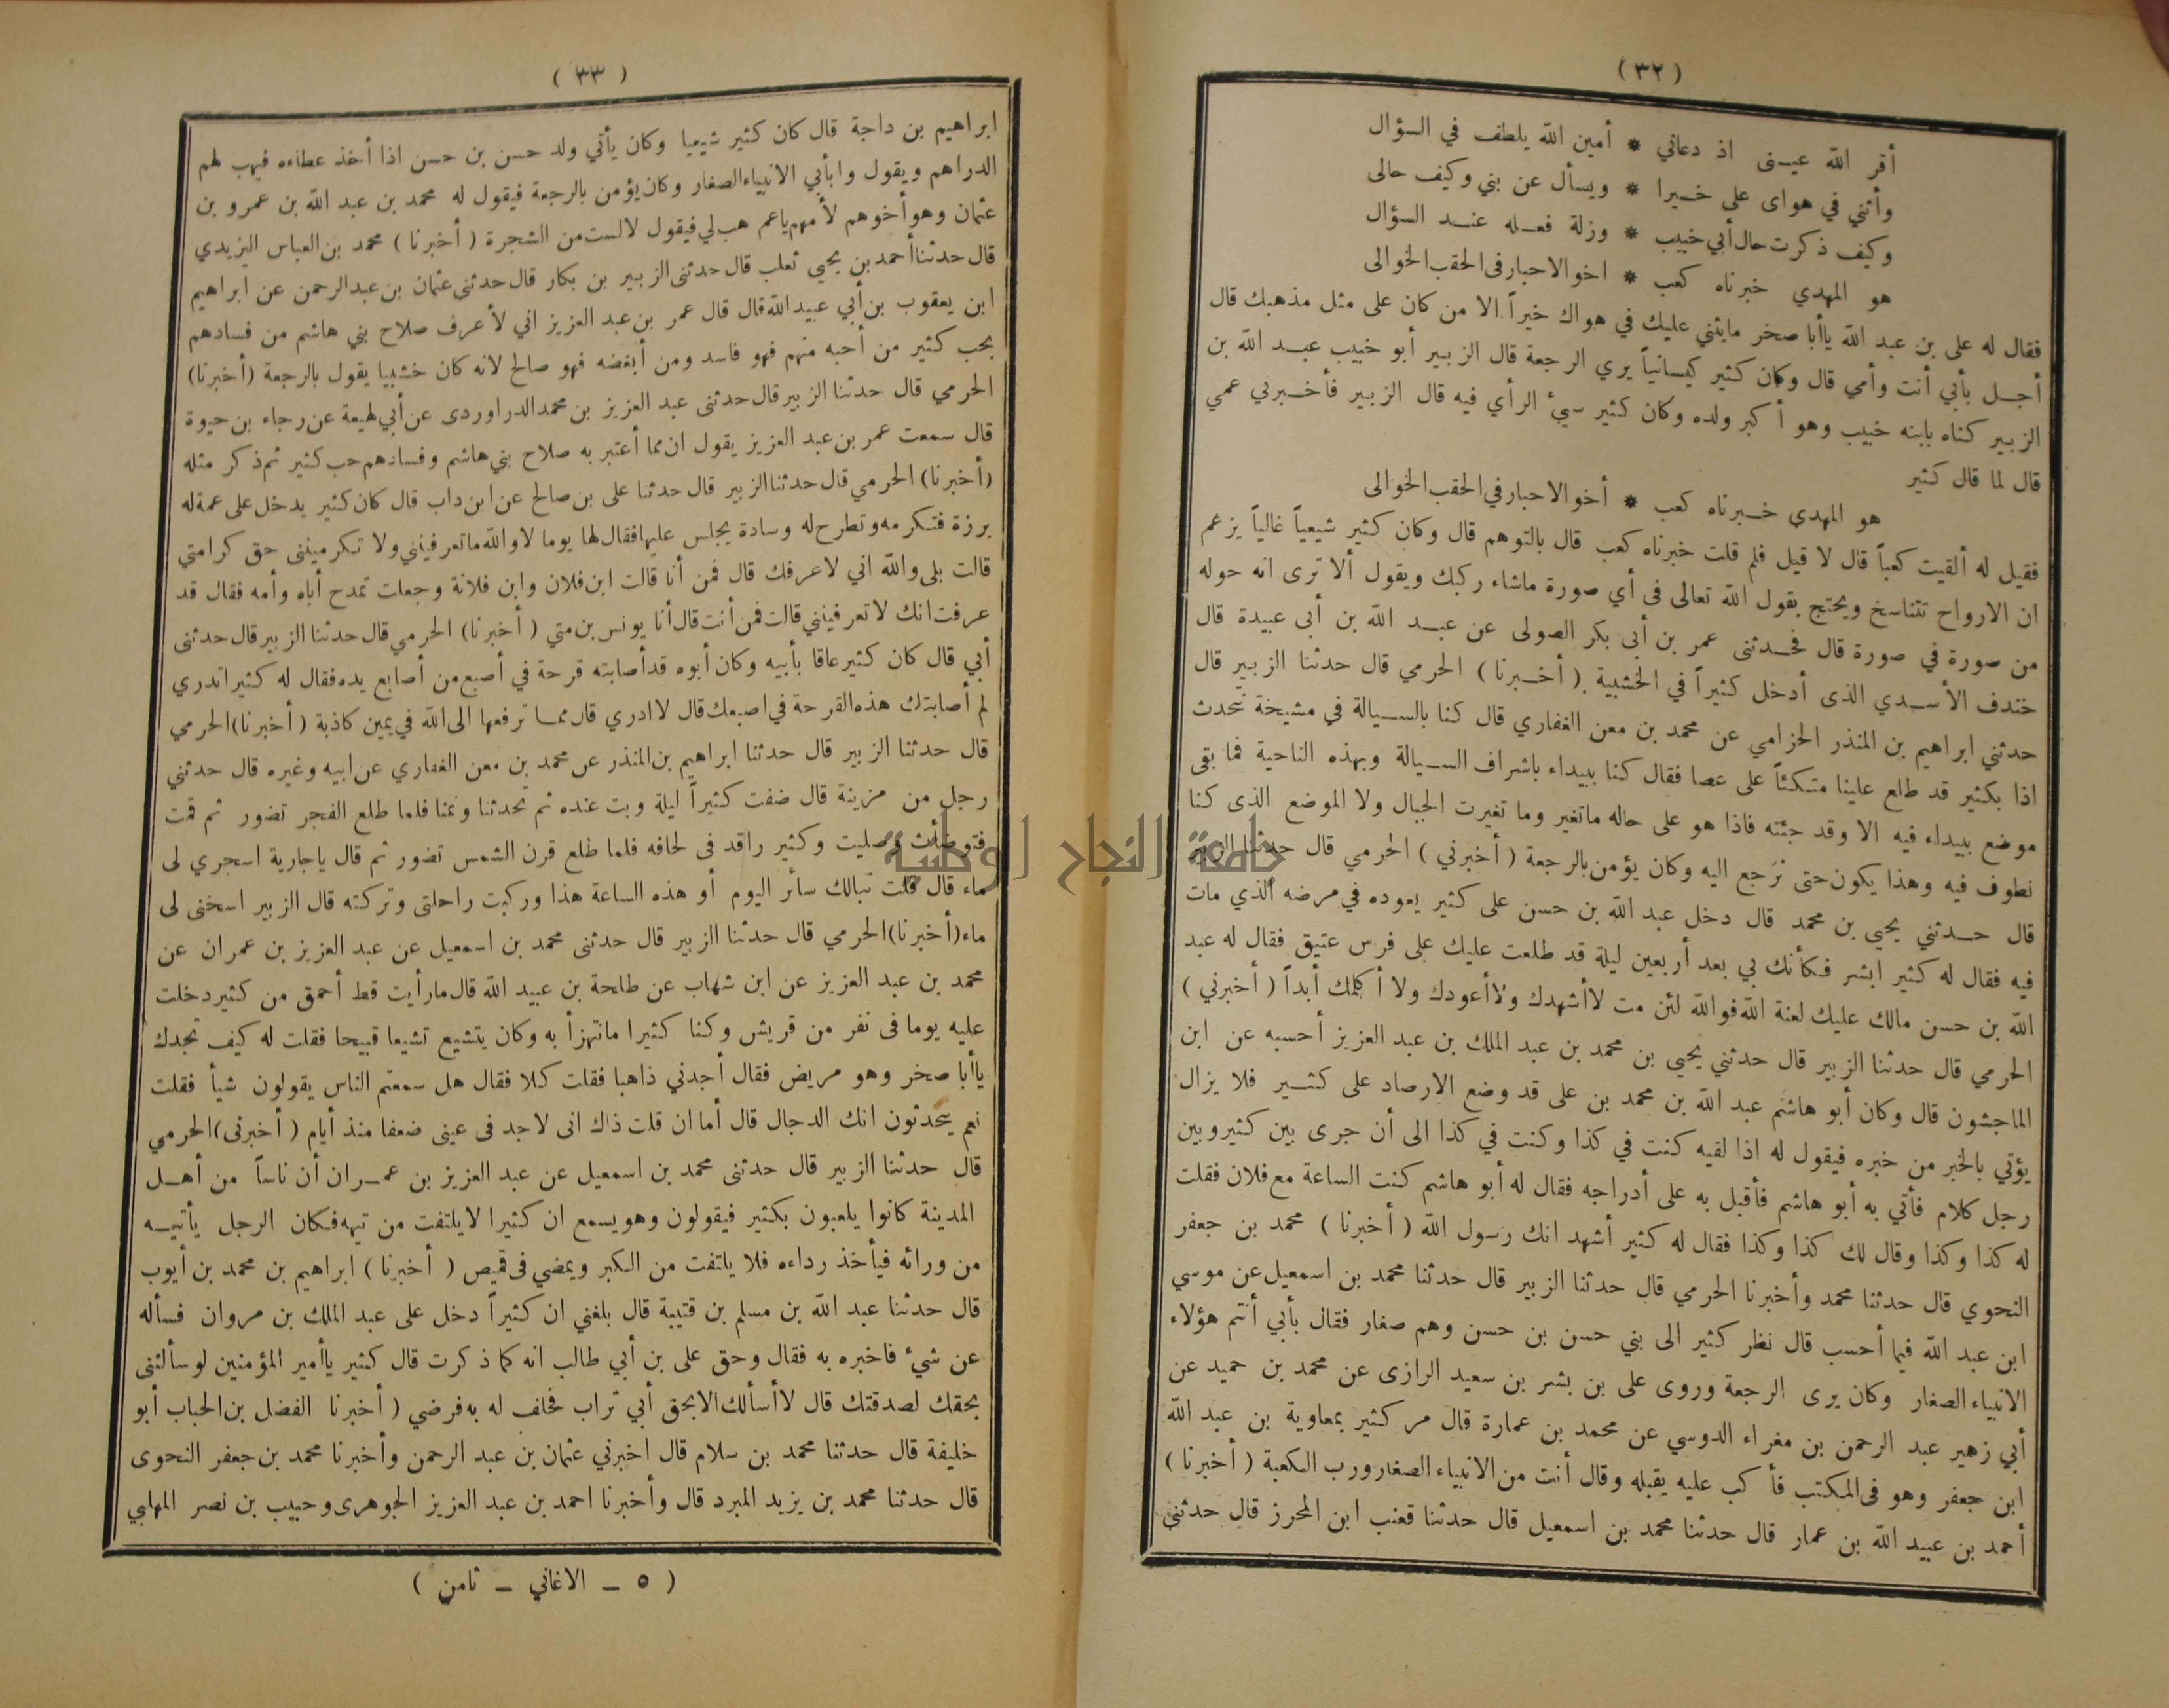 ( ٣٢ )
أقر الله عيـنى اذ دعاني * أمين الله يلطف في السؤال
وأثني في هواى على خـيرا * ويسأل عن بني وكيف حالى
وكيف ذكرت حال أبي خبيب * وزلة فعـله عنـد السؤال
هو المهدي خبرناه كعب * اخو الاحبار فى الحقب الخوالى
فقال له على بن عبد الله ياأبا صخر مايثني عليك في هواك خيراً الا من كان على مثل مذهبك قال
أجـل بأبي أنت وأمي قال وكان كثير كيسانياً يري الرجعة قال الزبير أبو خبيب عبـد الله بن
الزبير كناه بابنه خبيب وهو أكبر ولده وكان كثير سيء الرأي فيه قال الزبير فأخـبرني عمي
قال لما قال كثير
هو المهدي خـبرناه كعب * أخو الاحبار في الحقب الخوالى
فقيل له ألقيت كعباً قال لا قيل فلم قلت خبرناه كعب قال بالتوهم قال وكان كثير شيعياً غالياً يزعم
ان الارواح تتناسخ ويحتج بقول الله تعالى فى أي صورة ماشاء ركبك ويقول ألا ترى انه حوله
من صورة في صورة قال فحـدثنى عمر بن أبى بكر الصولى عن عبـد الله بن أبى عبيدة قال
خندف الأسـدي الذى أدخل كثيراً في الخشبية . ( أخـبرنا ) الحرمي قال حدثنا الزبير قال
حدثني ابراهيم بن المنذر الحزامي عن محمد بن معن الغفاري قال كنا بالسـيالة في مشيخة نتحدث
اذا بكثير قد طلع علينا متكئاً على عصا فقال كنا ببيداء باشراف السـيالة وبهذه الناحية فما بقى
موضع ببيداء فيه الا وقد جئته فاذا هو على حاله ماتغير وما تغيرت الجبال ولا الموضع الذى كنا
نطوف فيه وهذا يكون حتى نرجع اليه وكان يؤمن بالرجعة ( أخبرني ) الحرمي قال حدثنا الزبير
قال حـدثني يحيى بن محمد قال دخل عبد الله بن حسن على كثير يعوده في مرضه الذي مات
فيه فقال له كثير ابشر فكأنك بي بعد أربعين ليلة قد طلعت عليك على فرس عتيق فقال له عبد
الله بن حسن مالك عليك لعنة الله فوالله لئن مت لاأشهدك ولاأعودك ولا أكلمك أبداً ( أخبرني )
الحرمي قال حدثنا الزبير قال حدثني يحيى بن محمد بن عبد الملك بن عبد العزيز أحسبه عن ابن
الماجشون قال وكان أبو هاشم عبد الله بن محمد بن على قد وضع الارصاد على كثـير فلا يزال
يؤتي بالخبر من خبره فيقول له اذا لقيه كنت في كذا وكنت في كذا الى أن جرى بين كثير وبين
رجل كلام فأتي به أبو هاشم فأقبل به على أدراجه فقال له أبو هاشم كنت الساعة مع فلان فقلت
له كذا وكذا وقال لك كذا وكذا فقال له كثير أشهد انك رسول الله ( أخبرنا ) محمد بن جعفر
النحوي قال حدثنا محمد وأخبرنا الحرمي قال حدثنا الزبير قال حدثنا محمد بن اسمعيل عن موسي
ابن عبد الله فيما أحسب قال نظر كثير الى بني حسن بن حسن وهم صغار فقال بأبي أنتم هؤلاء
الانبياء الصغار وكان يرى الرجعة وروى على بن بشر بن سعيد الرازى عن محمد بن حميد عن
أبي زهير عبد الرحمن بن مغراء الدوسي عن محمد بن عمارة قال مر كثير بمعاوية بن عبد الله
ابن جعفر وهو فى المكتب فأكب عليه يقبله وقال أنت من الانبياء الصغار ورب الكعبة ( أخبرنا )
أحمد بن عبيد الله بن عمار قال حدثنا محمد بن اسمعيل قال حدثنا قعنب ابن المحرز قال حدثني
( ٣٣ )
ابراهيم بن داجة قال كان كثير شيعيا وكان يأتي ولد حسن بن حسن اذا أخذ عطاءه فيهب لهم
الدراهم ويقول وابأبي الانبياء الصغار وكان يؤمن بالرجعة فيقول له محمد بن عبد الله بن عمرو بن
عثمان وهو أخوهم لأمهم ياعم هب لي فيقول لا لست من الشجرة ( أخبرنا ) محمد بن العباس اليزيدي
قال حدثنا أحمد بن يحيي ثعلب قال حدثنى الزبير بن بكار قال حدثنى عثمان بن عبد الرحمن عن ابراهيم
ابن يعقوب بن أبي عبيد الله قال قال عمر بن عبد العزيز اني لأعرف صلاح بني هاشم من فسادهم
بحب كثير من أحبه منهم فهو فاسد ومن أبغضه فهو صالح لانه كان خشبيا يقول بالرجعة (أخبرنا)
الحرمي قال حدثنا الزبير قال حدثنى عبد العزيز بن محمد الدراوردى عن أبي لهيعة عن رجاء بن حيوة
قال سمعت عمر بن عبد العزيز يقول ان مما أعتبر به صلاح بني هاشم وفسادهم حب كثير ثم ذكر مثله
(أخبرنا) الحرمي قال حدثنا الزبير قال حدثنا على بن صالح عن ابن داب قال كان كثير يدخل على عمة له
برزة فتكرمه وتطرح له وسادة يجلس عليها فقال لها يوما لا والله ماتعرفينني ولا تكرمينى حق كرامتي
قالت بلى والله اني لاعرفك قال فمن أنا قالت ابن فلان وابن فلانة وجعلت تمدح أباه وأمه فقال قد
عرفت انك لاتعرفينني قالت فمن أنت قال أنا يونس بن متي ( أخبرنا) الحرمي قال حدثنا الزبير قال حدثنى
أبي قال كان كثير عاقا بأبيه وكان أبوه قد أصابته قرحة في أصبع من أصابع يده فقال له كثير اتدري
لم أصابتك هذه القرحة في اصبعك قال لا ادري قال مما ترفعها الى الله في يمين كاذبة ( أخبرنا)الحرمي
قال حدثنا الزبير قال حدثنا ابراهيم بن المنذر عن محمد بن معن الغفاري عن ابيه وغيره قال حدثني
رجل من مزينة قال ضفت كثيراً ليلة وبت عنده ثم تحدثنا ونمنا فلما طلع الفجر تضور ثم قمت
فتوضأت وصليت وكثير راقد فى لحافه فلما طلع قرن الشمس تضور ثم قال ياجارية اسجري لى
ماء قال قلت تبالك سائر اليوم أو هذه الساعة هذا وركبت راحلتى وتركته قال الزبير اسخنى لى
ماء(أخبرنا)الحرمي قال حدثنا الزبير قال حدثنى محمد بن اسمعيل عن عبد العزيز بن عمران عن
محمد بن عبد العزيز عن ابن شهاب عن طلحة بن عبيد الله قال مارأيت قط أحمق من كثير دخلت
عليه يوما فى نفر من قريش وكنا كثيرا مانتهزأ به وكان يتشيع تشيعا قبيحا فقلت له كيف تجدك
ياأبا صخر وهو مريض فقال أجدني ذاهبا فقلت كلا فقال هل سمعتم الناس يقولون شيأ فقلت
نعم يتحدثون انك الدجال قال أما ان قلت ذاك انى لاجد فى عينى ضعفا منذ أيام ( أخبرنى)الحرمي
قال حدثنا الزبير قال حدثنى محمد بن اسمعيل عن عبد العزيز بن عمـران أن ناساً من أهـل
المدينة كانوا يلعبون بكثير فيقولون وهو يسمع ان كثيرا لا يلتفت من تيهه فكان الرجل يأتيـه
من ورائه فيأخذ رداءه فلا يلتفت من الكبر ويمضي فى قميص ( أخبرنا ) ابراهيم بن محمد بن أيوب
قال حدثنا عبد الله بن مسلم بن قتيبة قال بلغني ان كثيراً دخل على عبد الملك بن مروان فسأله
عن شيء فاخبره به فقال وحق على بن أبي طالب انه كما ذكرت قال كثير ياأمير المؤمنين لو سألتنى
بحقك لصدقتك قال لاأسألك الا بحق أبي تراب فحلف له به فرضي ( أخبرنا الفضل بن الحباب أبو
خليفة قال حدثنا محمد بن سلام قال اخبرني عثمان بن عبد الرحمن وأخبرنا محمد بن جعفر النحوى
قال حدثنا محمد بن يزيد المبرد قال وأخبرنا احمد بن عبد العزيز الجوهرى وحبيب بن نصر المهلبي
( ٥ ــ الاغاني ــ ثامن )
جامعة النجاح الوطنية